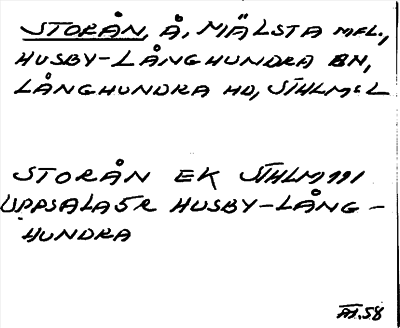 STORÅN, Å, MÄLSTA MFL.,
HUSBY-LÅNGHUNDRA SN,
LÅNGHUNDRA HD, STHLMS L
STORÅN EK STHLM 111
UPPSALA 5R HUSBY-LÅNG-
HUNDRA
58